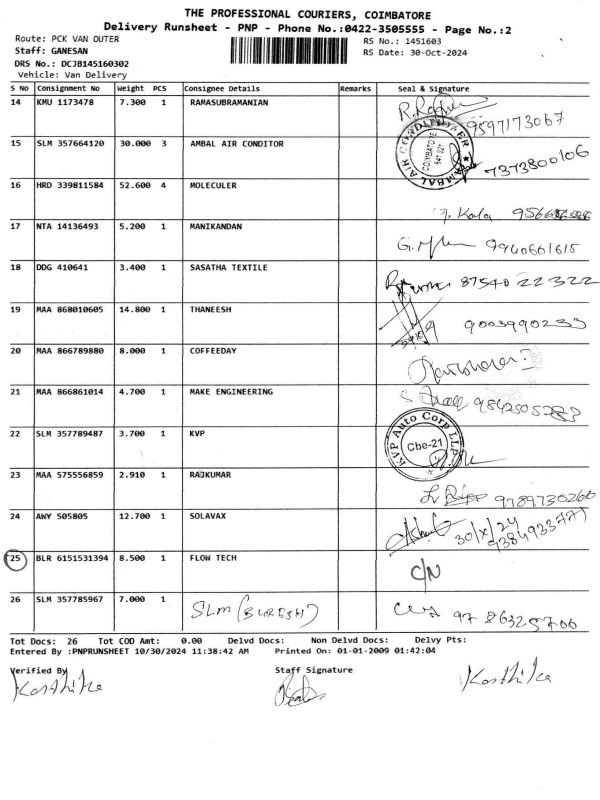 THE PROFESSIONAL COURIERS, COIMBATORE
Delivery Runsheet - PNP - Phone No.:0422-3505555 - Page No.:2
Route: PCK VAN OUTER
RS No.: 1451603
Staff: GANESAN
RS Date: 30-Oct-2024
DRS No.: DCJB145160302
Vehicle: Van Delivery
S No Consignment No Weight PCS Consignee Details Remarks Seal & Signature
14 KMU 1173478 7.300 1 RAMASUBRAMANIAN
9597173067
15 SLM 357664120 30.000 3 AMBAL AIR CONDITOR AMBAL AIR CONDITIONER COIMBATORE 641 021 7373800106
16 HRD 339811584 52.600 4 MOLECULER
Kala
17 NTA 14136493 5.200 1 MANIKANDAN
9940601615
18 DDG 410641 3.400 1 SASATHA TEXTILE
87540 22 322
19 MAA 868010605 14.800 1 THANEESH
9003990233
20 MAA 866789880 8.000 1 COFFEEDAY
21 MAA 866861014 4.700 1 MAKE ENGINEERING
22 SLM 357789487 3.700 1 KVP KVP Auto Corp LLP. Cbe-21
23 MAA 575556859 2.910 1 RAJKUMAR
9789730260
24 AWY 505805 12.700 1 SOLAVAX
30/X/24
9384933771
25 BLR 6151531394 8.500 1 FLOW TECH C/N
26 SLM 357785967 7.000 1 SLM (SURESH)
97 86325700
Tot Docs: 26 Tot COD Amt: 0.00 Delvd Docs: Non Delvd Docs: Delvy Pts:
Entered By :PNPRUNSHEET 10/30/2024 11:38:42 AM Printed On: 01-01-2009 01:42:04
Verified By Staff Signature
Karthika
Karthika